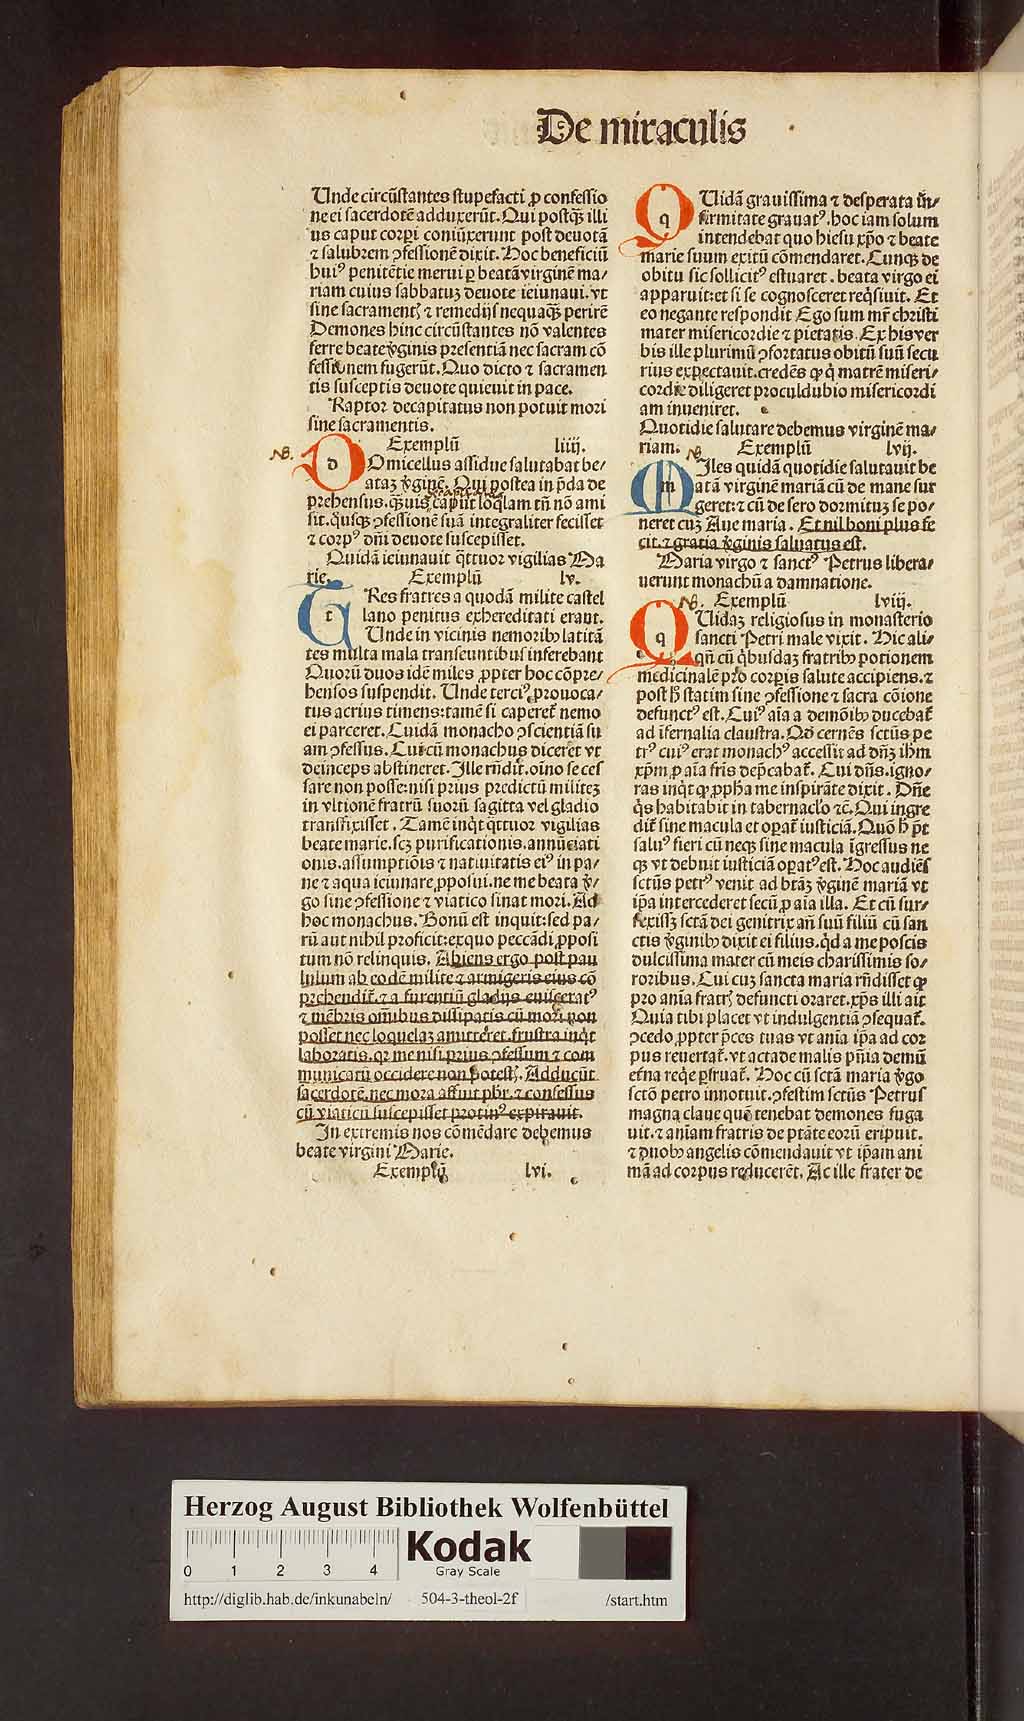 De miraculis
Unde circūstantes stupefacti ꝓ confessio
ne ei sacerdotē adduxerūt. Qui postqȝ illi
us caput corpori coniūxerunt post deuotā
⁊ salubrem ↄfessionē dixit. Hoc beneficiū
huiꝰ penitētie merui ꝑ beatā virginē ma⸗
riam cuius sabbatuȝ deuote ieiunaui. vt
sine sacrament⁊ ⁊ remedijs nequaqȝ perirē
Demones hinc circūstantes nō valentes
ferre beate v̄ginis presentiā nec sacram cō
fessionem fugerūt. Quo dicto ⁊ sacramen
tis susceptis deuote quieuit in pace.
Raptor decapitatus non potuit mori
sine sacramentis.
NB. Exemplū liiij.
DOmicellus assidue salutabat be⸗
ataȝ v̄ginē. Qui postea in p̄da de
prehensus. qȝuis caput loq̄lam tn̄ nō ami
sit. qͥusqȝ ↄfessionē suā integraliter fecisset
⁊ corpꝰ dn̄i deuote suscepisset.
Quidā ieiunauit q̄ttuor vigilias Ma
rie. Exemplū lv.
TRes fratres a quodā milite castel
lano penitus exhereditati erant.
Unde in vicinis nemoribꝫ latitā
tes multa mala transeuntibus inferebant
Quorū duos idē miles ꝓpter hoc cōpre⸗
hensos suspendit. Unde terciꝰ ꝓuoca⸗
tus acrius timens: tamē si caperet̄ nemo
ei parceret. Cuidā monacho ↄscientiā su
am ↄfessus. Cui cū monachus diceret vt
deinceps abstineret. Ille rn̄dit. oīno se ces
sare non posse: nisi prius predictū militeȝ
in vltionē fratrū suorū sagitta vel gladio
transfixisset. Tamē inqͥt q̄ttuor vigilias
beate marie. scȝ purificationis. annūciati
onis. assumptiōis ⁊ natiuitatis eiꝰ in pa⸗
ne ⁊ aqua ieiunare ꝓposui. ne me beata v̄⸗
go sine ↄfessione ⁊ viatico sinat mori. Ad
hoc monachus. Bonū est inquit: sed pa⸗
rū aut nihil proficit: ex quo peccādi ꝓposi
tum nō relinquis. Abiens ergo post pau
lulum ab eodē milite ⁊ armigeris eius cō
prehendit̄. ⁊ a furentiū gladijs euisceratꝰ
⁊ mēbris om̄ibus dissipatis cū mori non
posset nec loquelaȝ amitteret. frustra inqͥt
laboratis. qr me nisi prius ↄfessum ⁊ com
municatū occidere non potest⁊. Adducūt
sacerdotē. nec mora affuit pbr. ⁊ confessus
cū viaticū suscepisset protinꝰ expirauit.
In extremis nos cōmēdare debemus
beate virgini Marie.
Exemplū lvi.
QUidā grauissima ⁊ desperata in⸗
firmitate grauatꝰ. hoc iam solum
intendebat quo hiesu xp̄o ⁊ beate
marie suum exitū cōmendaret. Cunqȝ de
obitu sic sollicitꝰ estuaret. beata virgo ei
apparuit: et si se cognosceret req̄siuit. Et
eo negante respondit Ego sum mr̄ christi
mater misericordie ⁊ pietatis. Ex his ver
bis ille plurimū ↄfortatus obitū suū secu
rius expectauit. credēs ꝙ q̄ matrē miseri⸗
cordie diligeret proculdubio misericordi
am inueniret.
Quotidie salutare debemus virginē ma⸗
riam. NB Exemplū lvij.
MIles quidā quotidie salutauit be
atā virginē mariā cū de mane sur
geret: ⁊ cū de sero dormituȝ se po⸗
neret cuȝ Aue maria. Et nil boni plus fe
cit. ⁊ gratia v̄ginis saluatus est.
Maria virgo ⁊ sanctꝰ Petrus libera⸗
uerunt monachū a damnatione.
NB. Exemplū lviij.
QUidaȝ religiosus in monasterio
sancti Petri male vixit. Hic ali⸗
qn̄ cū qͥbusdaȝ fratribꝫ potionem
medicinalē pro corpis salute accipiens. ⁊
post h̄ statim sine ↄfessione ⁊ sacra cōione
defunctꝰ est. Cuiꝰ aīa a demōibꝫ ducebat̄
ad īfernalia claustra. Qd̄ cernēs sctūs pe
trꝰ cuiꝰ erat monachꝰ accessit ad dn̄ȝ ih̄m
xp̄m ꝓ aīa fr̄is dep̄cabat̄. Cui dn̄s. igno⸗
ras inqͥt ꝙ ꝓph̄a me inspirāte dixit. Dn̄e
qͥs habitabit in tabernaclo ⁊c̄. Qui ingre
dit̄ sine macula et oꝑat̄ iusticiā. Quō h̄ pōt
saluꝰ fieri cū neqȝ sine macula īgressus ne
qȝ vt debuit iusticiā oꝑatꝰ est. Hoc audiēs
sctūs petrꝰ venit ad btāȝ v̄ginē mariā vt
ip̄a intercederet secū ꝓ aīa illa. Et cū sur⸗
rexissȝ sctā dei genitrix an̄ suū filiū cū san
ctis v̄ginibꝫ dixit ei filius. qͥd a me poscis
dulcissima mater cū meis charissimis so⸗
roribus. Cui cuȝ sancta maria rn̄disset ꝙ
pro anīa fratr⁊ defuncti oraret. xp̄s illi ait
Quia tibi placet vt indulgentiā ↄsequat̄.
ↄcedo ꝓpter p̄ces tuas vt anīa ip̄a ad cor
pus reuertat̄. vt acta de malis pn̄ia demū
et̄na req̄e ꝑfruat̄. Hoc cū sctā maria v̄go
sctō petro innotuit. ↄfestim sctūs Petrus
magna claue quē tenebat demones fuga
uit. ⁊ anīam fratris de ptāte eorū eripuit.
⁊ duobꝫ angelis cōmendauit vt ip̄am ani
mā ad corpus reducerēt. Ac ille frater de
Herzog August Bibliothek Wolfenbüttel
0 1 2 3 4
Kodak
Gray Scale
http://diglib.hab.de/inkunabeln/ 504-3-theol-2f /start.htm